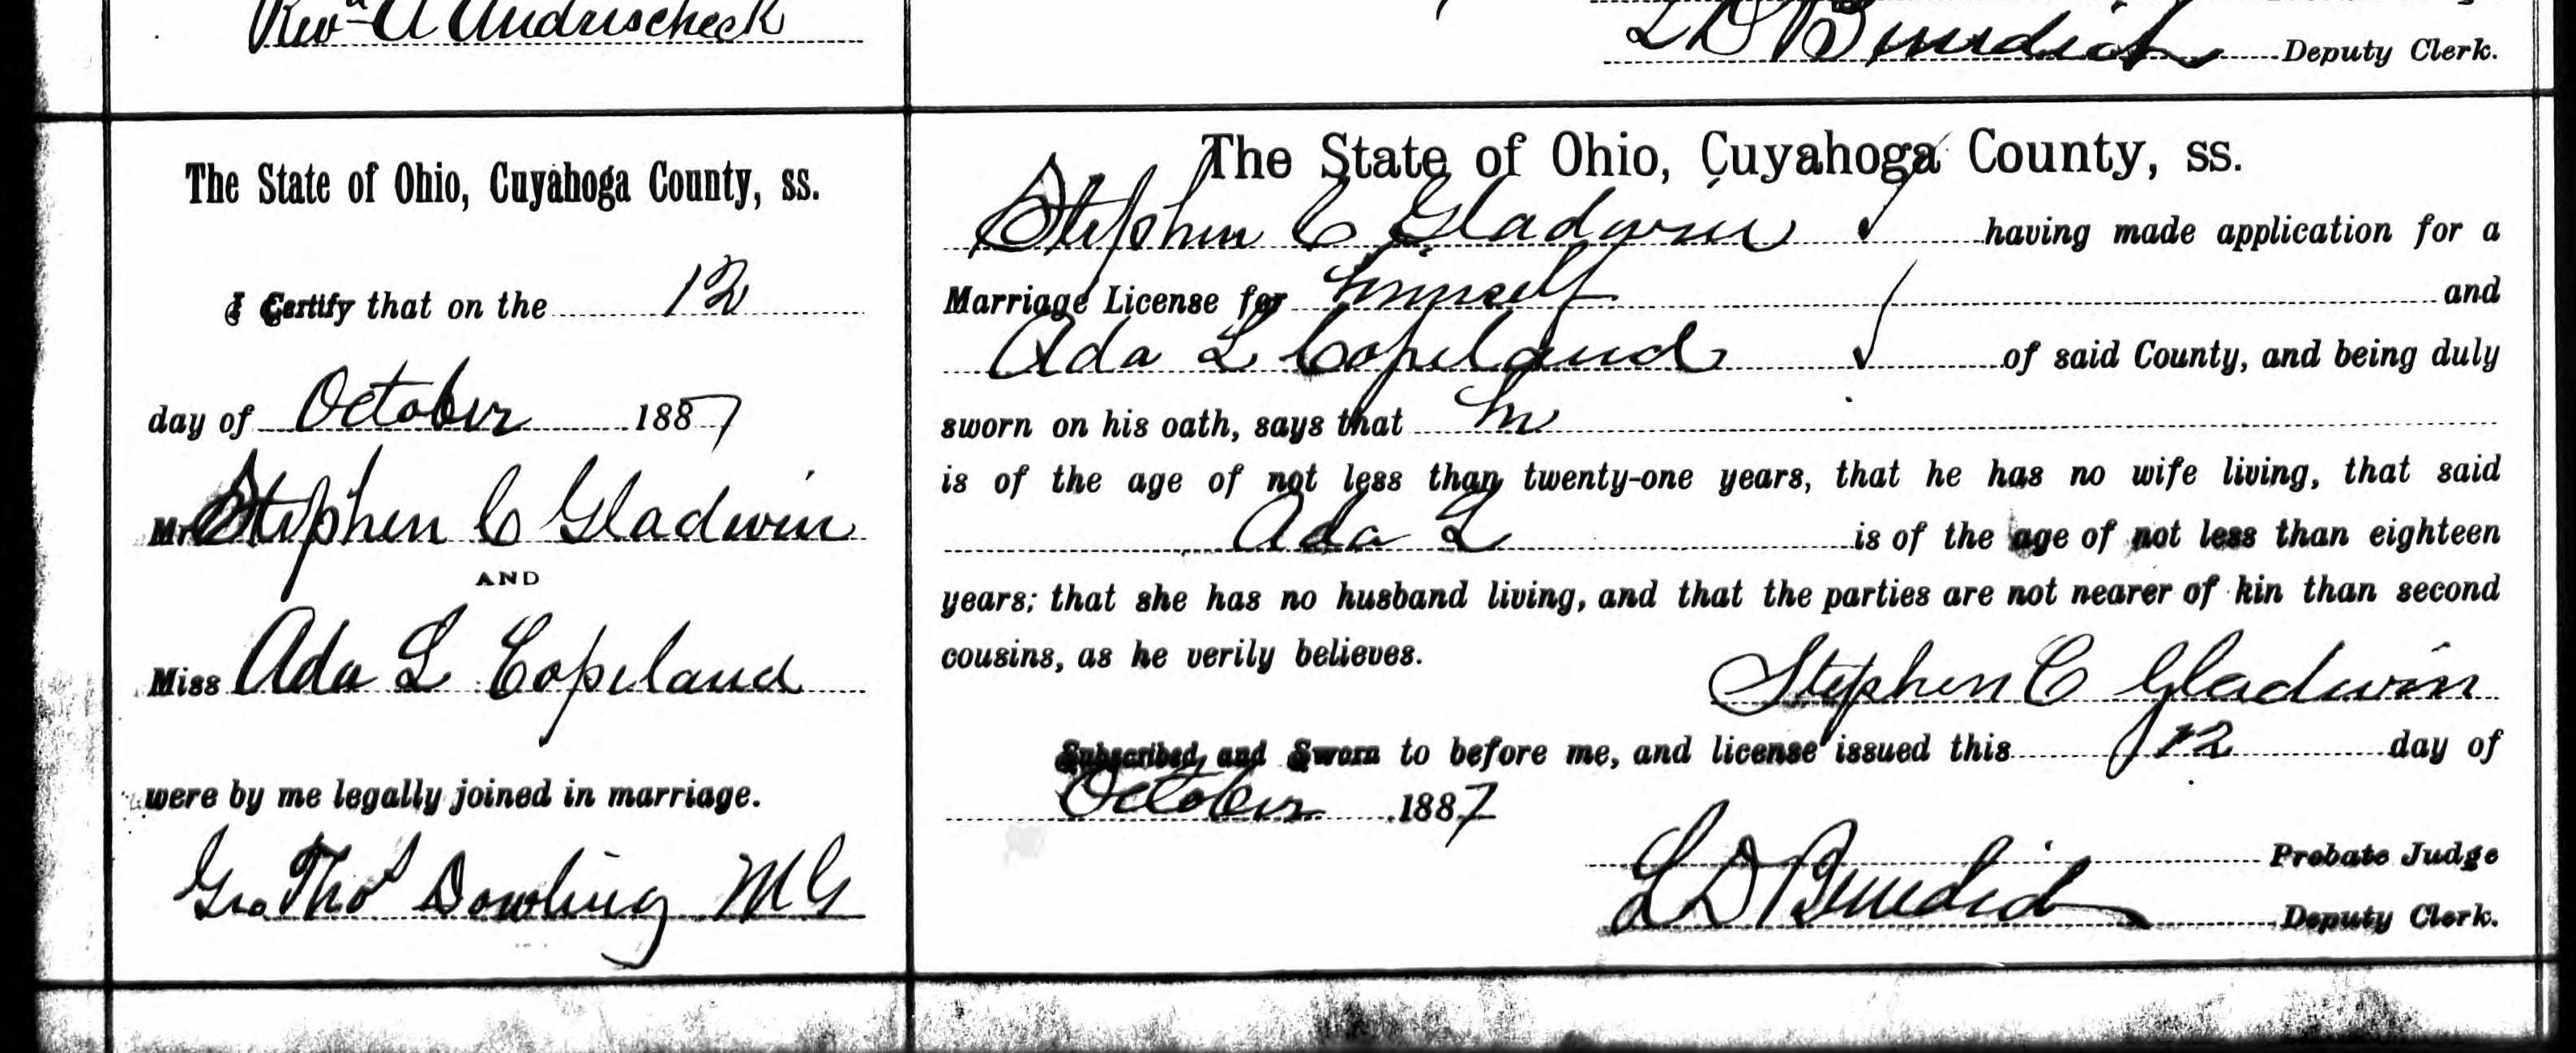 Revd A Andrischeck
L D Benedict Deputy Clerk.
The State of Ohio, Cuyahoga County, ss.
I Certify that on the 12
day of October 1887
Mr. Stephen C Gladwin
AND
Miss Ada L Copeland
were by me legally joined in marriage.
Geo Thos Dowling M G
The State of Ohio, Cuyahoga County, ss.
Stephen C Gladwin having made application for a
Marriage License for himself and
Ada L Copeland of said County, and being duly
sworn on his oath, says that he
is of the age of not less than twenty-one years, that he has no wife living, that said
Ada L is of the age of not less than eighteen
years; that she has no husband living, and that the parties are not nearer of kin than second
cousins, as he verily believes.
Stephen C Gladwin
Subscribed, and Sworn to before me, and license issued this 12 day of
October 1887
Probate Judge
L D Benedict Deputy Clerk.